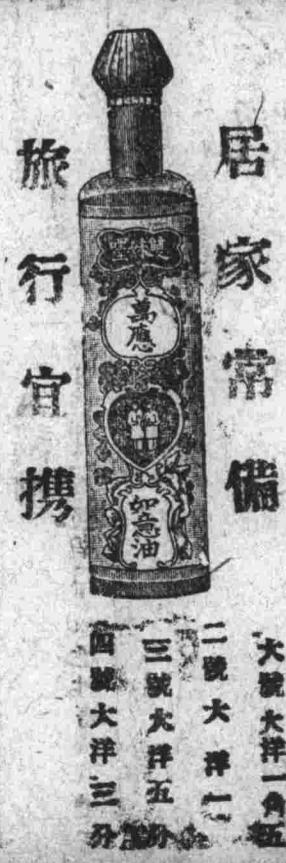 居家常備
旅行宜携
萬應
如意油
大號大洋一角五
二號大洋一
三號大洋五分
四號大洋三分